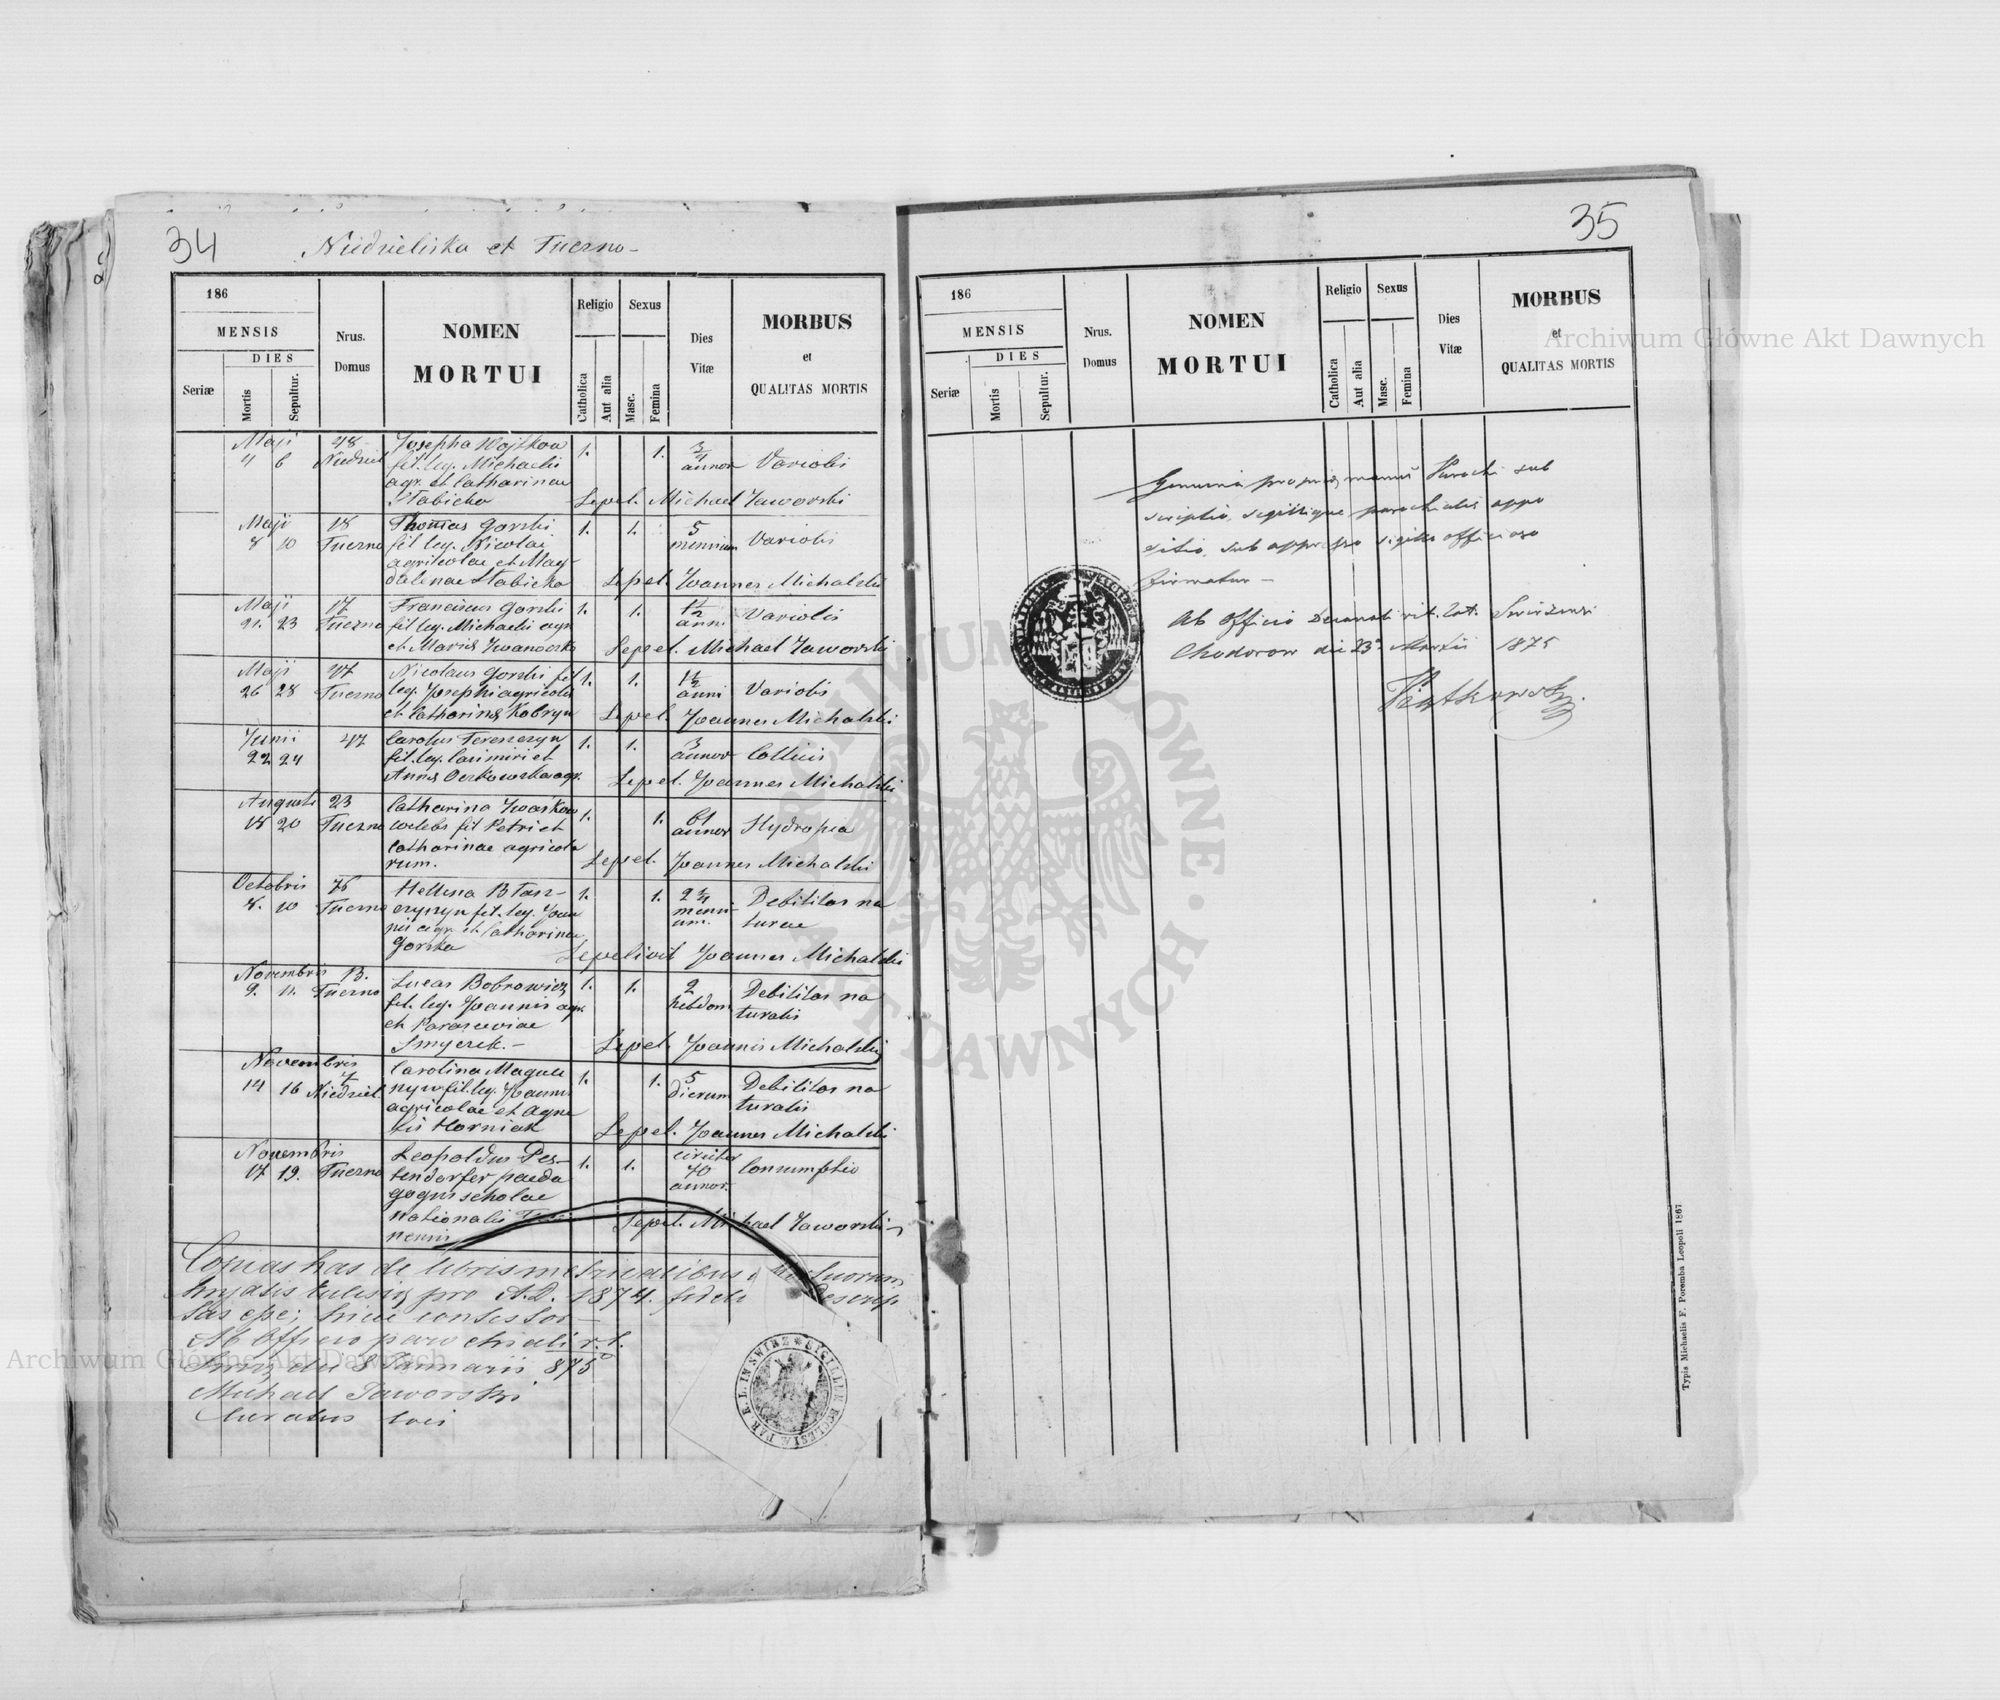 34
Niedzieliska et Tuczno
186
MENSIS
DIES
Seriæ
Mortis
Sepultur.
Nrus.
Domus
NOMEN
MORTUI
Religio
Catholica
Aut alia
Sexus
Masc.
Femina
Dies
Vitæ
MORBUS
et
QUALITAS MORTIS
Maji 48 Josepha Wojtkow
4 6 Niedziel fil. leg. Michaelis 1. 1. 3/4 annor Variolis
agr. et Catharinae
Stabicka Sepel. Michael Jaworski
Maji 18 Thomas Gorski
8 10 Tuczno fil leg. Nicolai 1. 1. 5 mensium Variolis
agricolae et Mag-
dalenae Stabicka Sepel. Joannes Michalski
Maji 17 Franciscus Gorski
21. 23 Tuczno fil leg. Michaelis agr. 1. 1. 1 1/2 anni Variolis
et Mariæ Iwanocko Sepel. Michael Jaworski
Maji 47 Nicolaus Gorski fil
26 28 Tuczno leg. Josephi agricolae 1. 1. 1 1/2 anni Variolis
et Catharinæ Kobryn Sepel. Joannes Michalski
Junii 47 Carolus Tereszczyn
22 24 fil. leg. Casimiri et 1. 1. 3 annor
Annæ agr. Sepel. Joannes Michalski
Augusti 23 Catharina Iwaskow
18 20 Tuczno coelebs fil Petri et 1. 1. 61 annor Hydropea
Catharinae agricola
rum. Sepel. Joannes Michalski
Octobris 76 Hellena Blasz-
8. 10 Tuczno czyszyn fil. leg. Joan 1. 1. 2 3/4 mensi- um. Debilitas na
nis agr. et Catharinae turae
Gorska Sepelivit Joannes Michalski
Novembris 13. Lucas Bobrowicz
9. 11. Tuczno fil. leg. Joannis agr. 1. 1. 2 hebdom Debilitas na
et Parasceviae turalis
Smyczek. - Sepel. Joannis Michalski
Novembris 7 Carolina Magule
14 16 Niedziel. fil. leg. Joannis 1. 1. 5 dierum Debilitas na
agricolae et Agne turalis
tis Horniak Sepel. Joannes Michalski
Novembris Leopoldus Des-
17 19. Tuczno tendorfer paeda 1. 1. circiter 70 annor. Consumptio
gogus scholae
nationalis
Sepel. Michael Jaworski
Copias has de libris metricalibus
pro A.D. 1874. fideli descrip
tas esse; hisce contestor
Ab Officio parochiali r. l.
Swirz die 8 Januarii 875
Michael Jaworski
Curatus loci
SIGILLUM ECCLESIÆ PAR. R. L. IN SWIRZ
35
186
MENSIS
DIES
Seriæ
Mortis
Sepultur.
Nrus.
Domus
NOMEN
MORTUI
Religio
Catholica
Aut alia
Sexus
Masc.
Femina
Dies
Vitæ
MORBUS
et
QUALITAS MORTIS
Genuina propriæ manus Parochi sub
scriptio, sigillique parochialis appo
sitio, sub appresso sigillo officioso
firmatur -
Ab Officio Decanali rit. lat. Swirzensi
Chodorow die 23 Martii 1875
Piątkowski
Typis Michaelis F. Poremba Leopoli 1867
Archiwum Główne Akt Dawnych
Archiwum Główne Akt Dawnych
ARCHIWUM GŁÓWNE · AKT DAWNYCH ·